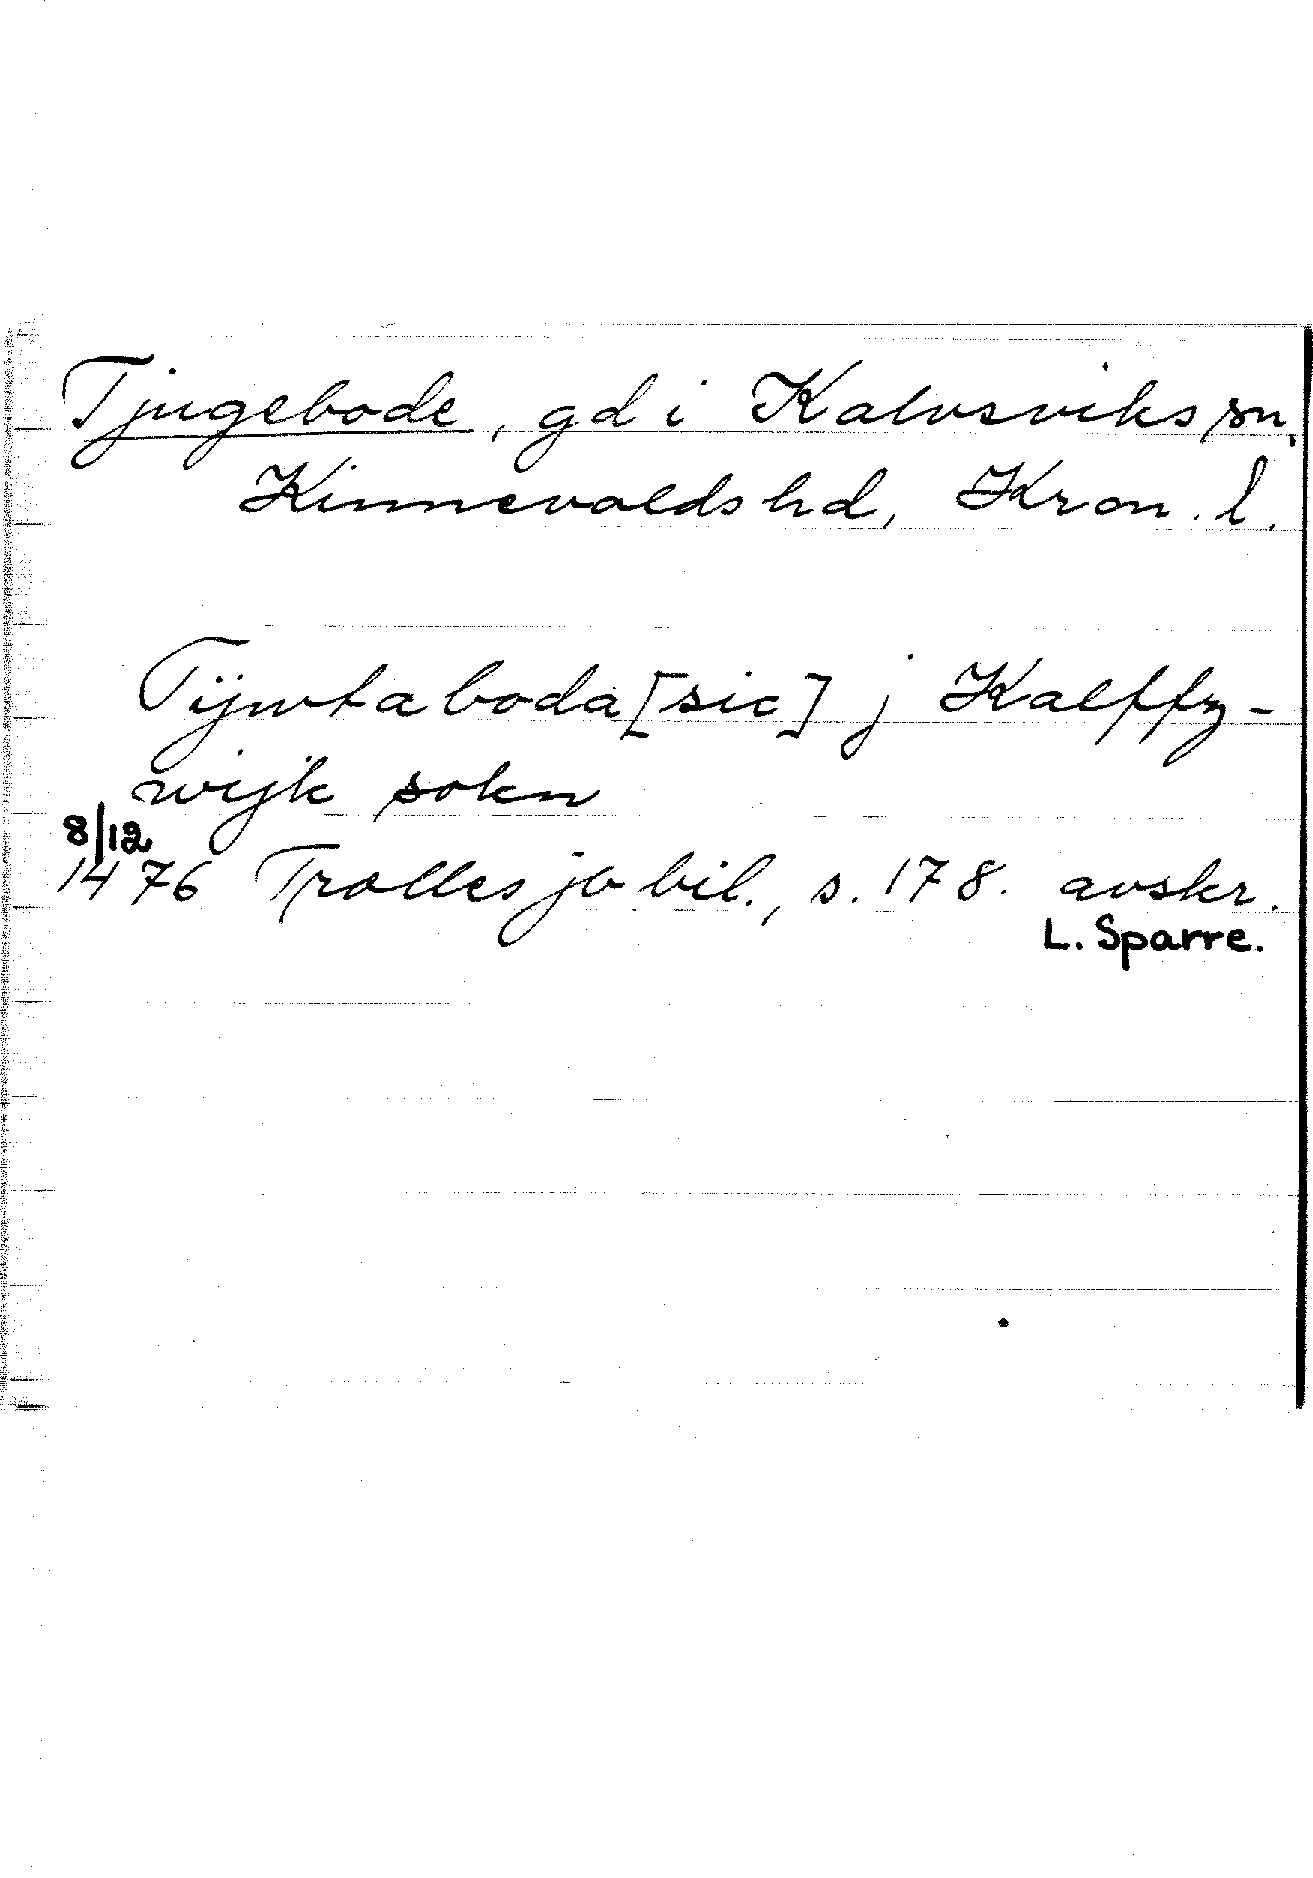 Tjugebode, gd i Kalvsviks sn,
Kinnevalds hd, Kron. l.
Tijwta boda [sic] j Kalffz-
wijk sokn
8/12
1476 Trolles jb bil., s. 178. avskr.
L. Sparre.